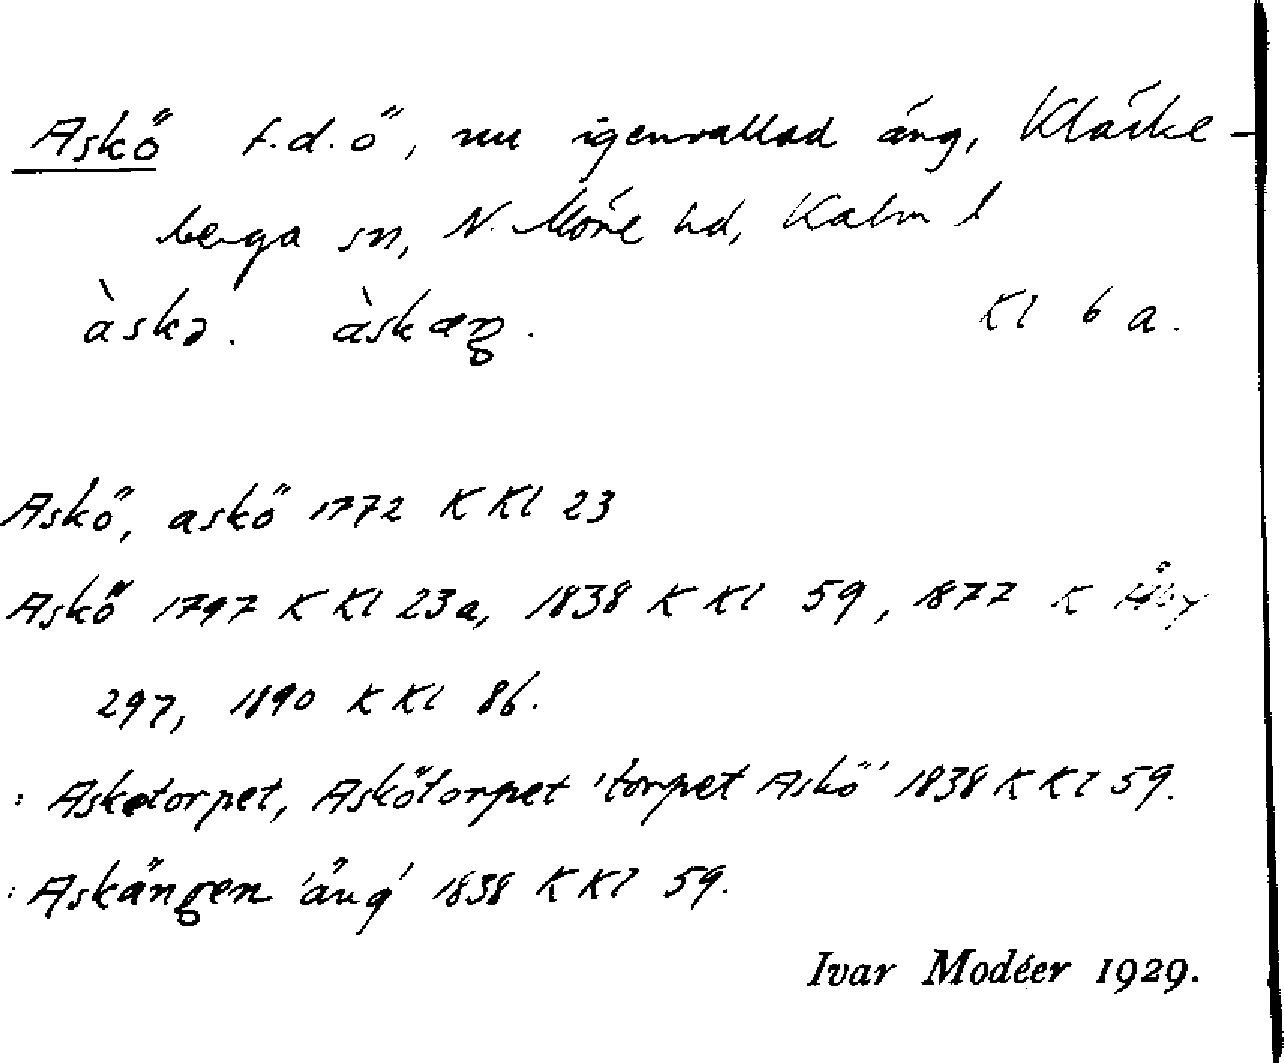 Askö f.d. ö, nu igenvallad äng, Kläcke-
berga sn, N. Möre hd, Kalm l
àskə. àskæŋ. Kl 6 a.
Askö, askö 1772 K Kl 23
Askö 1797 K Kl 23a, 1838 K Kl 59, 1877 K Åby
297, 1890 K Kl 86.
: Asketorpet, Askötorpet 'torpet Askö' 1838 K Kl 59.
: Askängen 'äng' 1838 K Kl 59.
Ivar Modéer 1929.